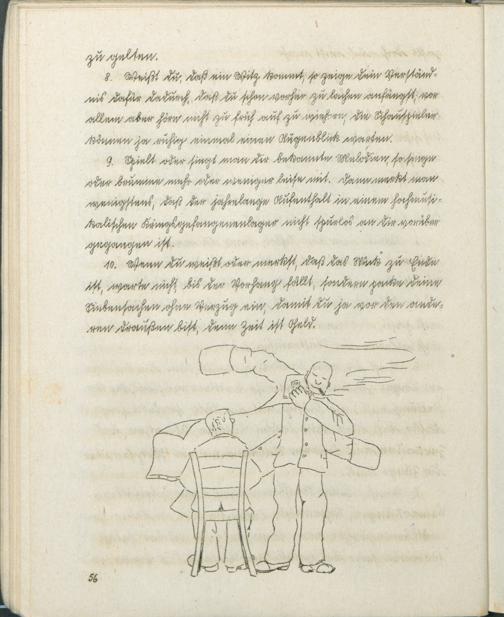 zu gelten.
8. Weißt Du, daß ein Witz kommt, so zeige Dein Verständ-
nis dafür dadurch, daß Du schon vorher zu lachen anfängst; vor
allem aber hör nicht zu früh auf zu , die Schauspieler
können ja ruhig einmal einen Augenblick warten.
9. Spielt oder singt man dir bekannte Melodien, so singe
oder brumme mehr oder weniger leise mit. Dann merkt man
wenigstens, daß der jahrelange Aufenthalt in einem hochmusi-
kalischen Kriegsgefangenenlager nicht spurlos an Dir vorüber
gegangen ist.
10. Wenn Du weißt oder merkst, daß das Stück zu Ende
ist, warte nicht, bis der Vorhang fällt, sondern packe deine
Siebensachen ohne Verzug ein, damit Du ja vor den ande-
ren draußen bist, denn Zeit ist Geld.
56